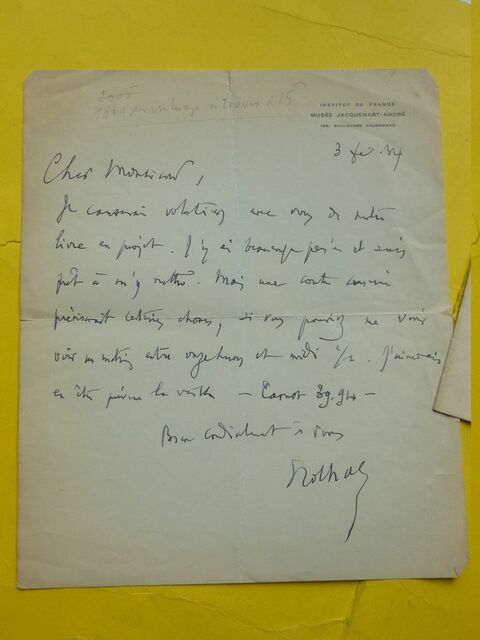 2000
à 20000 à 25
INSTITUT DE FRANCE
MUSÉE JACQUEMART-ANDRÉ
158, BOULEVARD HAUSSMANN
3 fév. 34
Cher Monsieur,
Je causerai volontiers avec vous de notre
livre en projet. J'y ai beaucoup pensé et suis
prêt à m'y mettre. Mais une courte causerie
préciserait certaines choses, si vous pouviez me venir
voir un matin entre onze heures et midi 1/2. J'aimerais
en être prévenu la veille — Carnot 39.90 —
Bien cordialement à vous